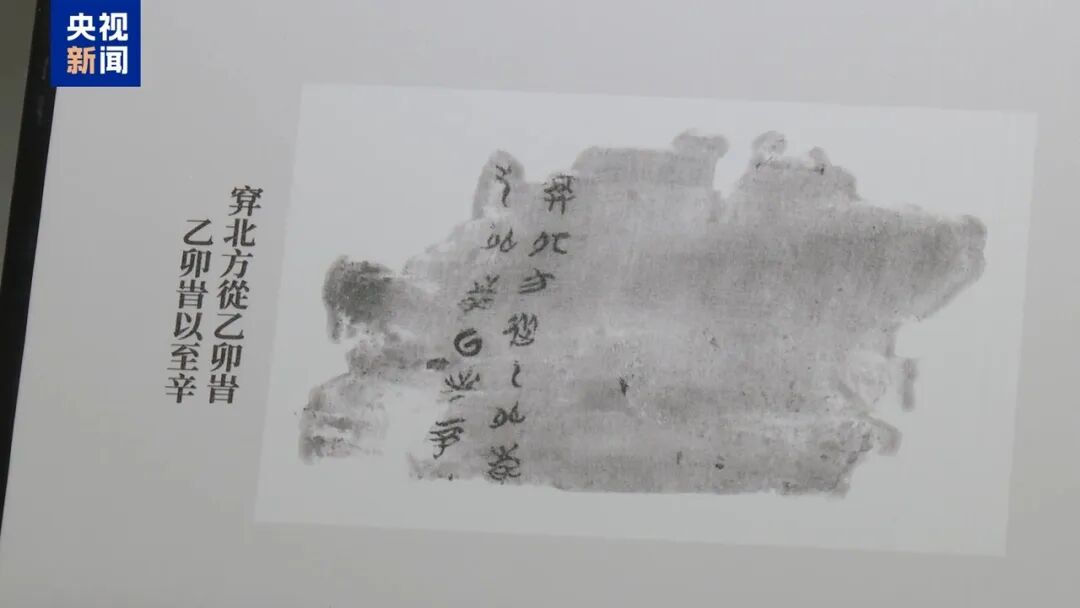 央视
新闻
穽北方從乙卯旹
乙卯旹以至辛